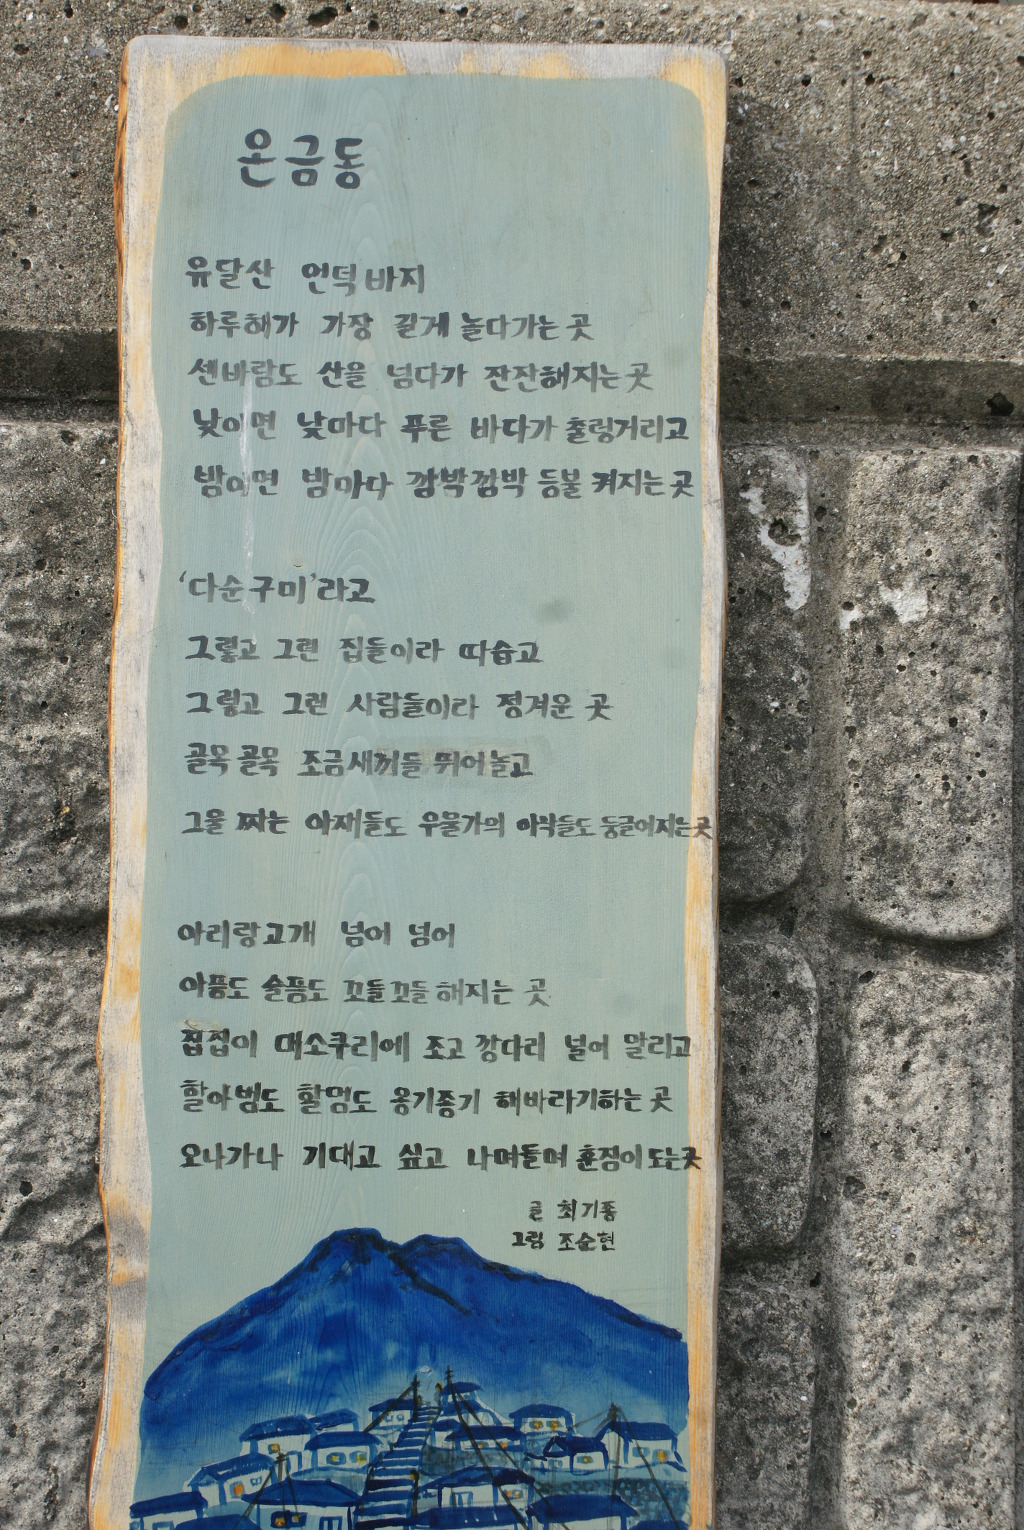 온금동
유달산 언덕바지
하루해가 가장 길게 놀다가는 곳
센바람도 산을 넘다가 잔잔해지는 곳
낮이면 낮마다 푸른 바다가 출렁거리고
밤이면 밤마다 깜박깜박 등불 켜지는 곳
'다순구미'라고
그렇고 그런 집들이라 따습고
그렇고 그런 사람들이라 정겨운 곳
골목골목 조금새끼들 뛰어놀고
그물 짜는 아재들도 우물가의 아낙들도 둥글어지는곳
아리랑고개 넘어 넘어
아픔도 슬픔도 꼬들꼬들해지는 곳
집집이 대소쿠리에 조고 깡다리 널어 말리고
할아범도 할멈도 옹기종기 해바라기하는 곳
오나가나 기대고 싶고 나며들며 훈짐이 도는곳
글 최기종
그림 조순현